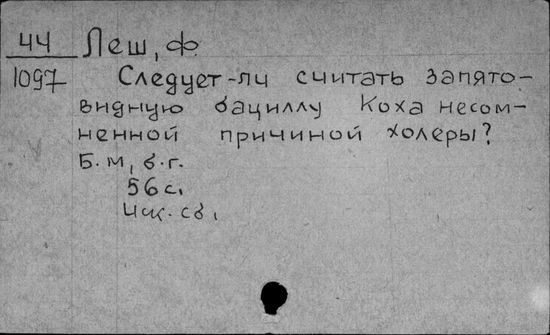 44 Леш, Ф.
1097 Следует-ли считать запято-
видную бациллу Коха несом-
ненной причиной холеры?
Б.м, б.г.
56 с.
Иск. сб.